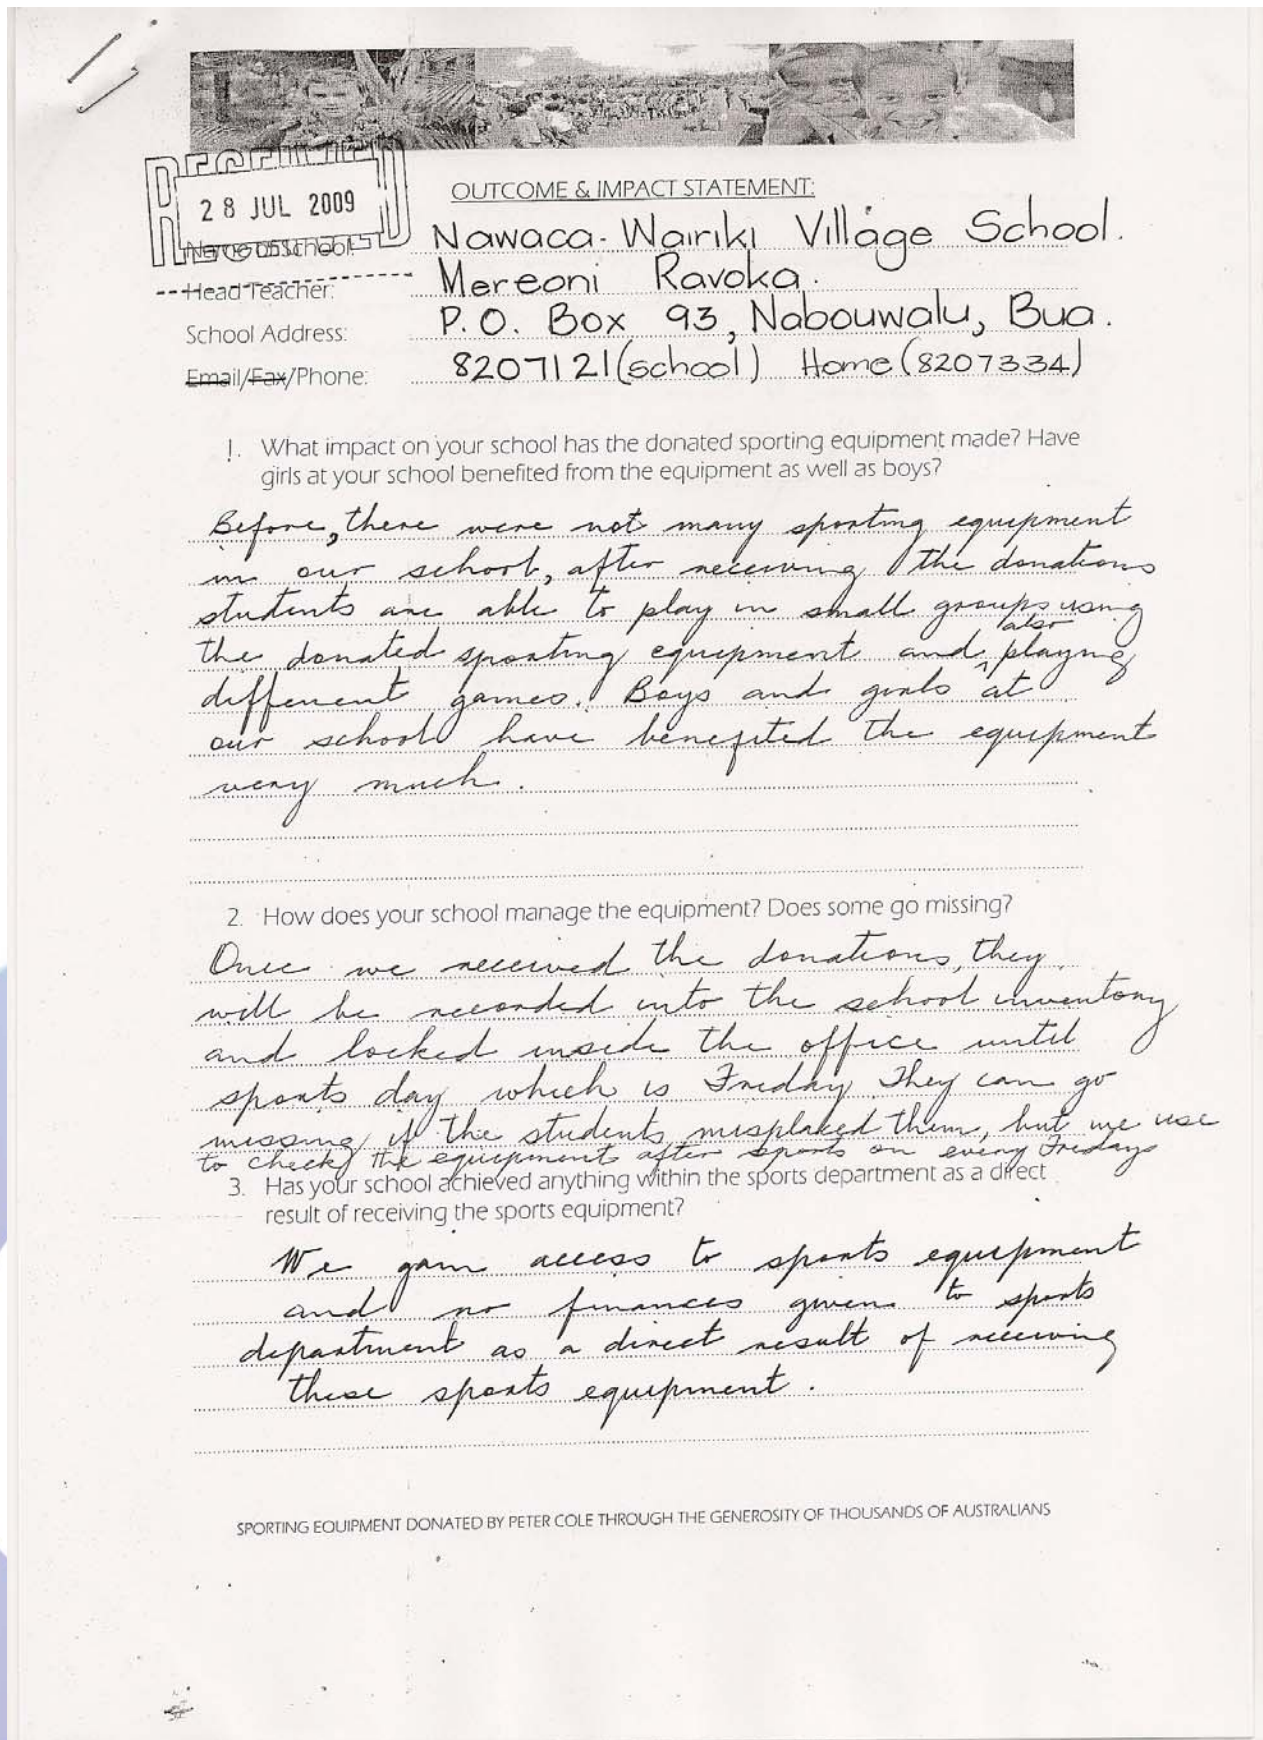 RECEIVED
28 JUL 2009
OUTCOME & IMPACT STATEMENT:
Name of School: Nawaca-Wairiki Village School.
Head Teacher: Mereoni Ravoka.
School Address: P.O. Box 93, Nabouwalu, Bua.
Email/Fax/Phone: 8207121(school) Home (8207334)
1. What impact on your school has the donated sporting equipment made? Have
girls at your school benefited from the equipment as well as boys?
Before, there were not many sporting equipment
in our school, after receiving the donations
students are able to play in small groups using
the donated sporting equipment and also playing
different games. Boys and girls at
our school have benefited the equipment
very much.
2. How does your school manage the equipment? Does some go missing?
Once we received the donations, they
will be recorded into the school inventory
and locked inside the office until
sports day which is Friday. They can go
missing if the students misplaced them, but we use
to check the equipments after sports on every Fridays
3. Has your school achieved anything within the sports department as a direct
result of receiving the sports equipment?
We gain access to sports equipment
and no finances given to sports
department as a direct result of receiving
these sports equipment.
SPORTING EQUIPMENT DONATED BY PETER COLE THROUGH THE GENEROSITY OF THOUSANDS OF AUSTRALIANS